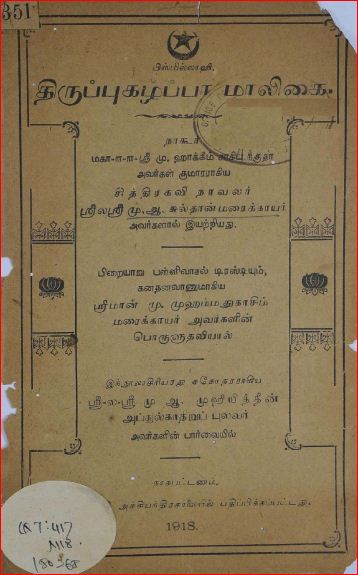 351
பிஸ்மில்லாஹி.
திருப்புகழ்ப்பா மாலிகை.
நாகூர்
மகா-ா-ா-ஸ்ரீ மு. ஹாக்கீம் சாகிபு
அவர்கள் குமாரராகிய
சித்திரகவி நாவலர்
ஸ்ரீலஸ்ரீ மு. ஆ. சுல்தான்மரைக்காயர்
அவர்களால் இயற்றியது.
பிறையாறு பள்ளிவாசல் டிரஸ்டியும்,
கனதனவானுமாகிய
ஸ்ரீமான் மு. முஹம்மதுகாசிம்
மரைக்காயர் அவர்களின்
பொருளுதவியால்
இந்நூலாசிரியரது சகோதரராகிய
ஸ்ரீ-ல-ஸ்ரீ மு ஆ. முஹியித்தீன்
அப்துல்காதிறுப் புலவர்
அவர்களின் பார்வையில்
நாகபட்டணம்,
பதிப்பிக்கப்பட்டது.
1918.
417
M18.